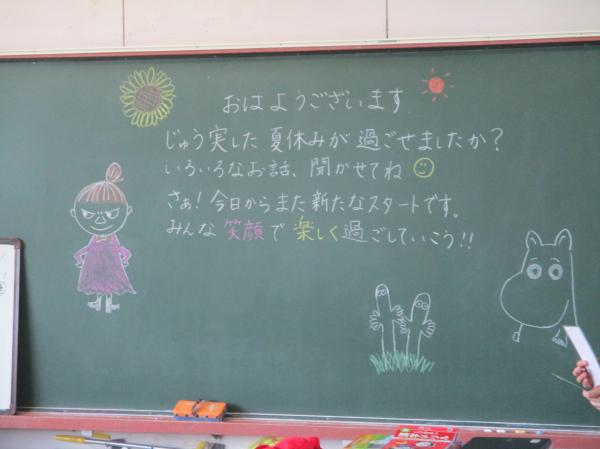 おはようございます
じゅう実した 夏休みが 過ごせましたか？
いろいろなお話、聞かせてね
さぁ！今日からまた新たなスタートです。
みんな 笑顔で 楽しく過ごしていこう！！